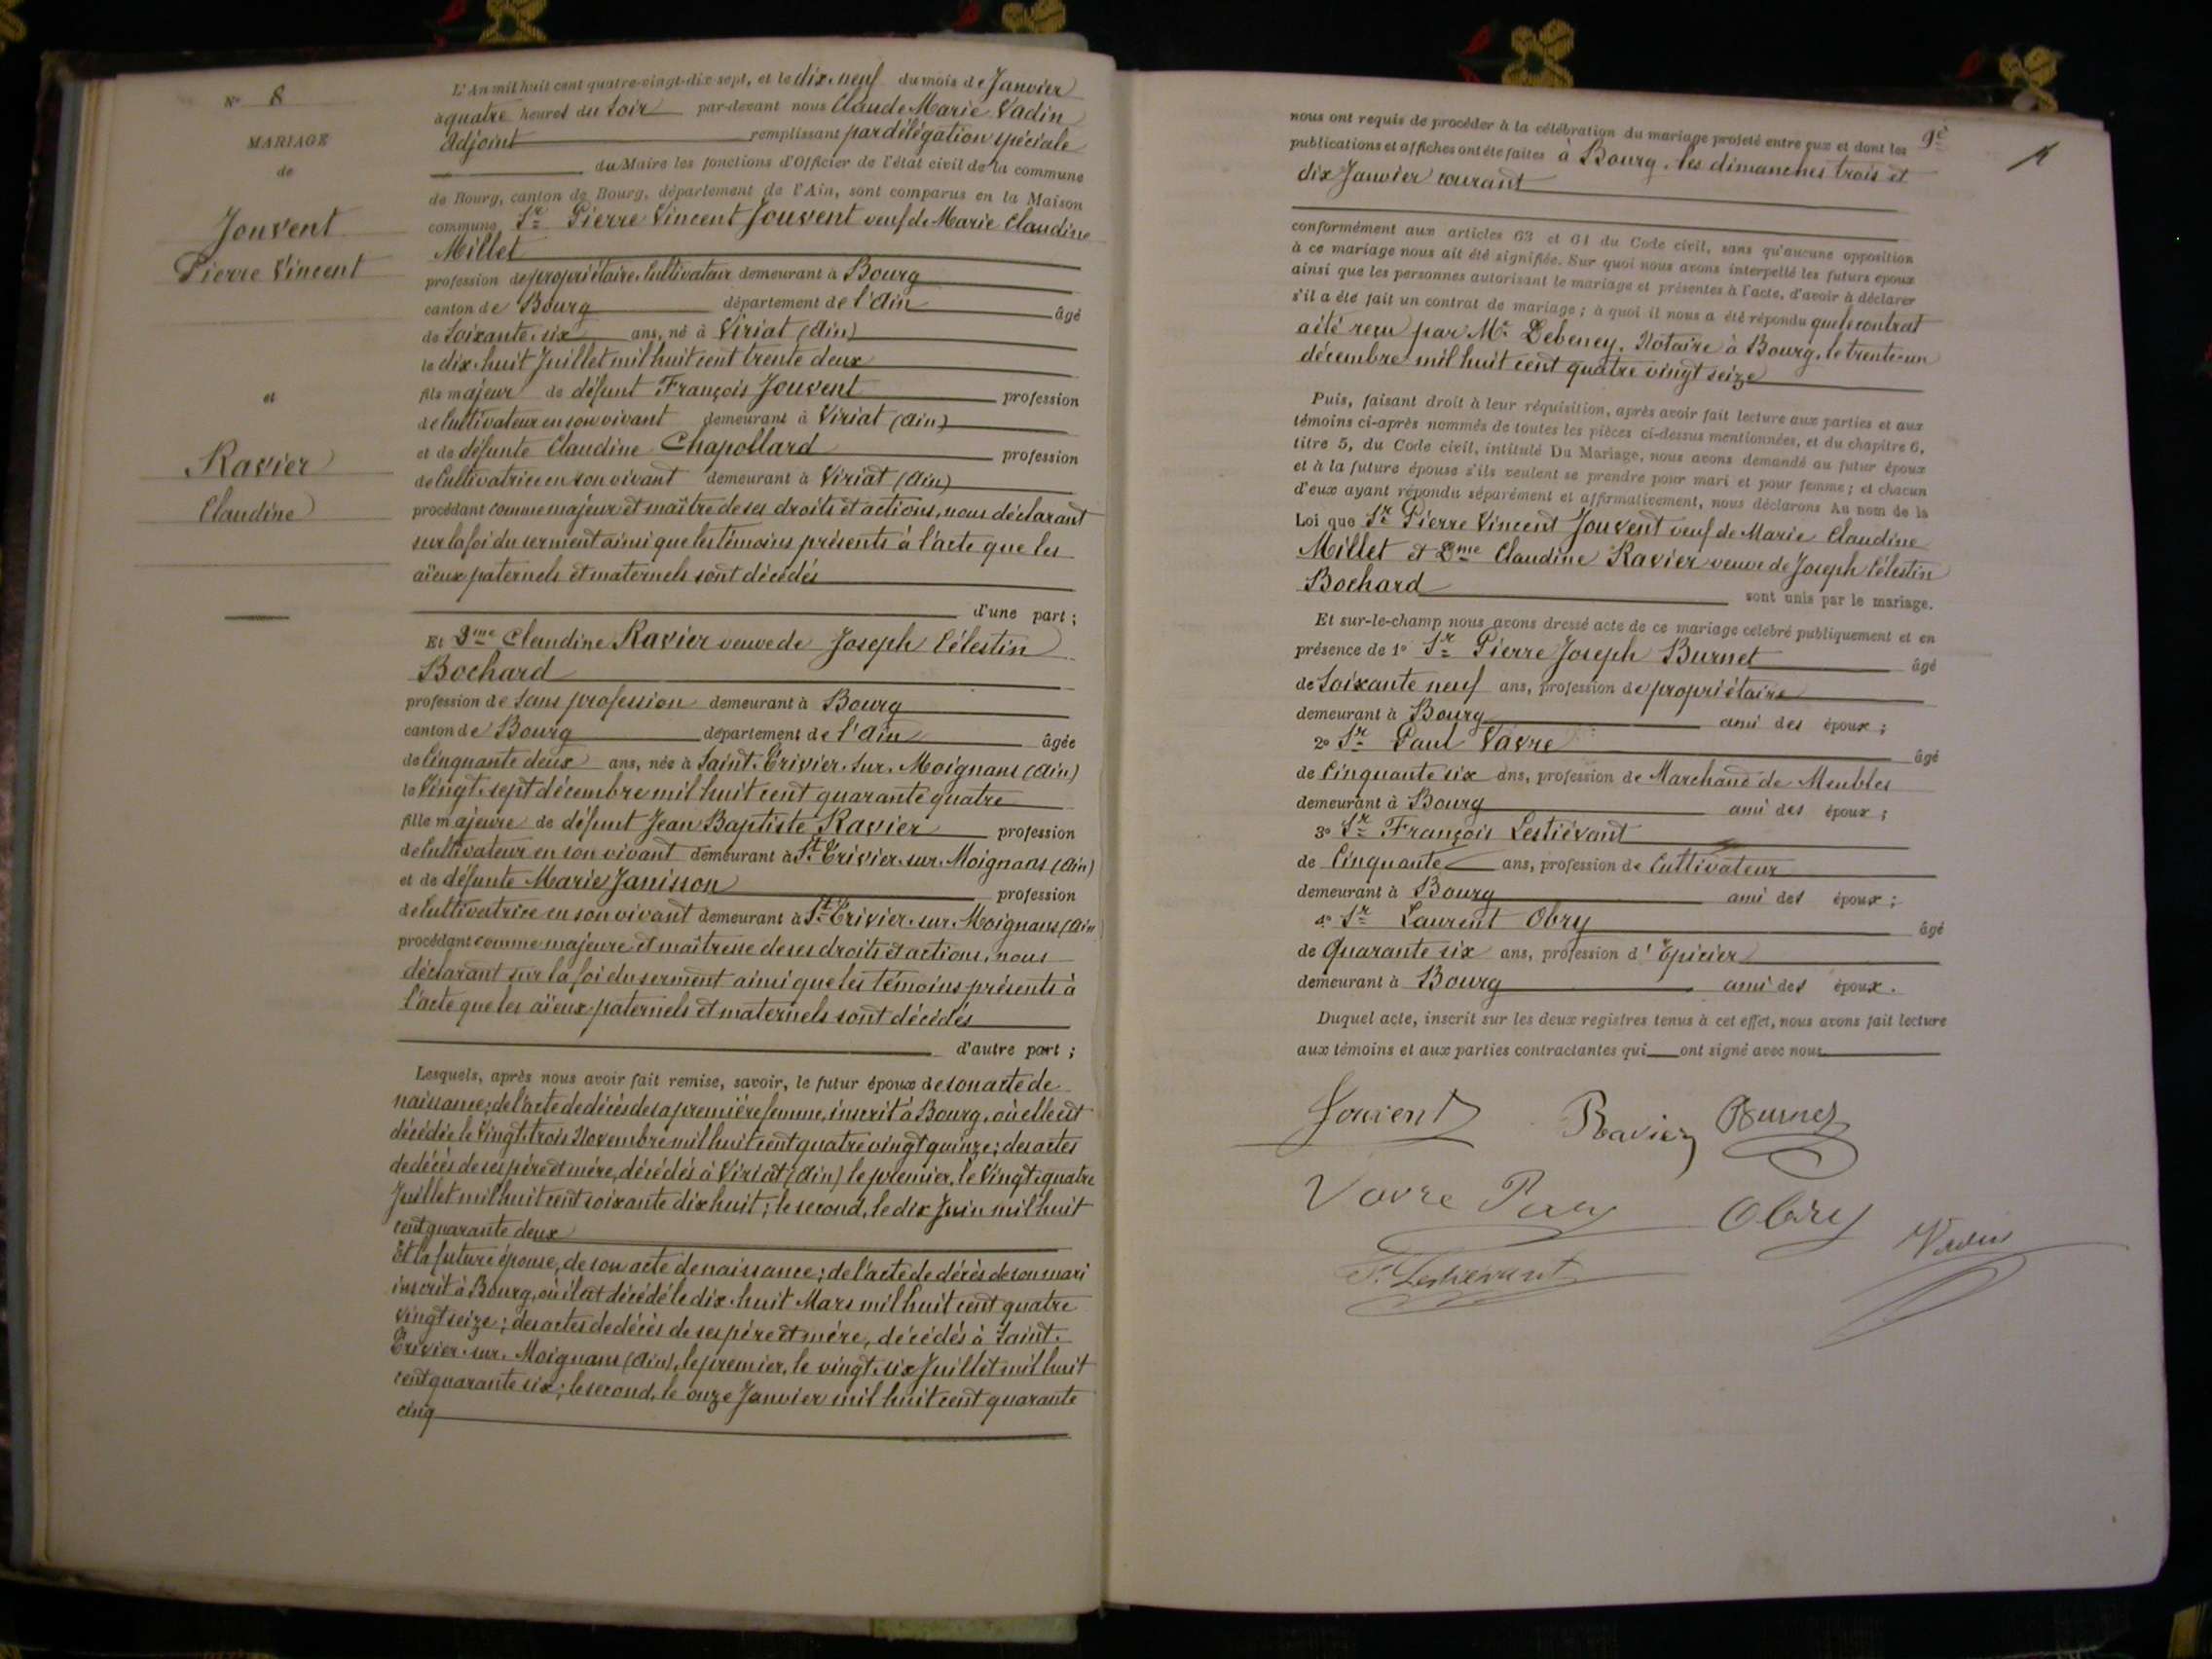 N° 8
MARIAGE
de
Jouvent
Pierre Vincent
et
Ravier
Claudine
L'An mil huit cent quatre-vingt-dix sept, et le dix neuf du mois de Janvier
à quatre heures du Soir par-devant nous Claude Marie Vadin
Adjoint remplissant par délégation spéciale
du Maire les fonctions d'Officier de l'état civil de la commune
de Bourg, canton de Bourg, département de l'Ain, sont comparus en la Maison
commune Sr Pierre Vincent Jouvent veuf de Marie Claudine
Millet
profession de propriétaire Cultivateur demeurant à Bourg
canton de Bourg département de l'Ain âgé
de Soixante. six ans, né à Viriat (Ain)
le dix. huit Juillet mil huit cent trente deux
fils majeur de défunt François Jouvent profession
de Cultivateur en son vivant demeurant à Viriat (Ain)
et de défunte Claudine Chapollard profession
de Cultivatrice en son vivant demeurant à Viriat (Ain)
procédant comme majeur et maître de ses droits et actions, nous déclarant
sur la foi du serment ainsi que les témoins présents à l'acte que les
aïeux paternels et maternels sont décédés
d'une part ;
Et Dme Claudine Ravier veuve de Joseph Célestin
Bochard
profession de Sans profession demeurant à Bourg
canton de Bourg département de l'Ain âgée
de Cinquante deux ans, née à Saint. Trivier. Sur. Moignans (Ain)
le Vingt. sept décembre mil huit cent quarante quatre
fille majeure de défunt Jean Baptiste Ravier profession
de Cultivateur en son vivant demeurant à St Trivier. sur. Moignans (Ain)
et de défunte Marie Janisson profession
de Cultivatrice en son vivant demeurant à St Trivier. sur. Moignans (Ain)
procédant comme majeure et maîtresse de ses droits et actions, nous
déclarant sur la foi du serment ainsi que les témoins présents à
l'acte que les aïeux paternels et maternels sont décédés
d'autre part ;
Lesquels, après nous avoir fait remise, savoir, le futur époux de son acte de
naissance; de l'acte de décès de sa première femme, inscrit à Bourg, où elle est
décédée le Vingt. trois Novembre mil huit cent quatre vingt quinze; des actes
de décès de ses père et mère, décédés à Viriat (Ain) le premier, le Vingt. quatre
Juillet mil huit cent soixante dix huit; le second, le dix Juin mil huit
cent quarante deux
Et la future épouse, de son acte de naissance; de l'acte de décès de son mari
inscrit à Bourg, où il est décédé le dix. huit Mars mil huit cent quatre
Vingt seize; des actes de décès de ses père et mère, décédés à Saint.
Trivier. sur. Moignans (Ain), le premier, le vingt. six Juillet mil huit
cent quarante six; le second, le onze Janvier mil huit cent quarante
cinq
nous ont requis de procéder à la célébration du mariage projeté entre eux et dont les
publications et affiches ont été faites à Bourg. les dimanches trois et
dix Janvier courant
conformément aux articles 63 et 64 du Code civil, sans qu'aucune opposition
à ce mariage nous ait été signifiée. Sur quoi nous avons interpellé les futurs époux
ainsi que les personnes autorisant le mariage et présentes à l'acte, d'avoir à déclarer
s'il a été fait un contrat de mariage ; à quoi il nous a été répondu que le contrat
a été reçu par Me Debeney, Notaire à Bourg, le trente un
décembre mil huit cent quatre vingt seize
Puis, faisant droit à leur réquisition, après avoir fait lecture aux parties et aux
témoins ci-après nommés de toutes les pièces ci-dessus mentionnées, et du chapitre 6,
titre 5, du Code civil, intitulé Du Mariage, nous avons demandé au futur époux
et à la future épouse s'ils veulent se prendre pour mari et pour femme ; et chacun
d'eux ayant répondu séparément et affirmativement, nous déclarons Au nom de la
Loi que Sr Pierre Vincent Jouvent veuf de Marie Claudine
Millet et Dme Claudine Ravier veuve de Joseph Célestin
Bochard sont unis par le mariage.
Et sur-le-champ nous avons dressé acte de ce mariage célébré publiquement et en
présence de 1° Sr Pierre Joseph Burnet âgé
de Soixante neuf ans, profession de propriétaire
demeurant à Bourg ami des époux ;
2° Sr Paul Vavre âgé
de Cinquante six ans, profession de Marchand de Meubles
demeurant à Bourg ami des époux ;
3° Sr François Lestiévant
de Cinquante ans, profession de Cultivateur
demeurant à Bourg ami des époux ;
4° Sr Laurent Obry âgé
de Quarante six ans, profession d'Epicier
demeurant à Bourg ami des époux.
Duquel acte, inscrit sur les deux registres tenus à cet effet, nous avons fait lecture
aux témoins et aux parties contractantes qui ont signé avec nous
Jouvent Ravier Burnet
Vavre Paul Obry Vadin
F. Lestievant